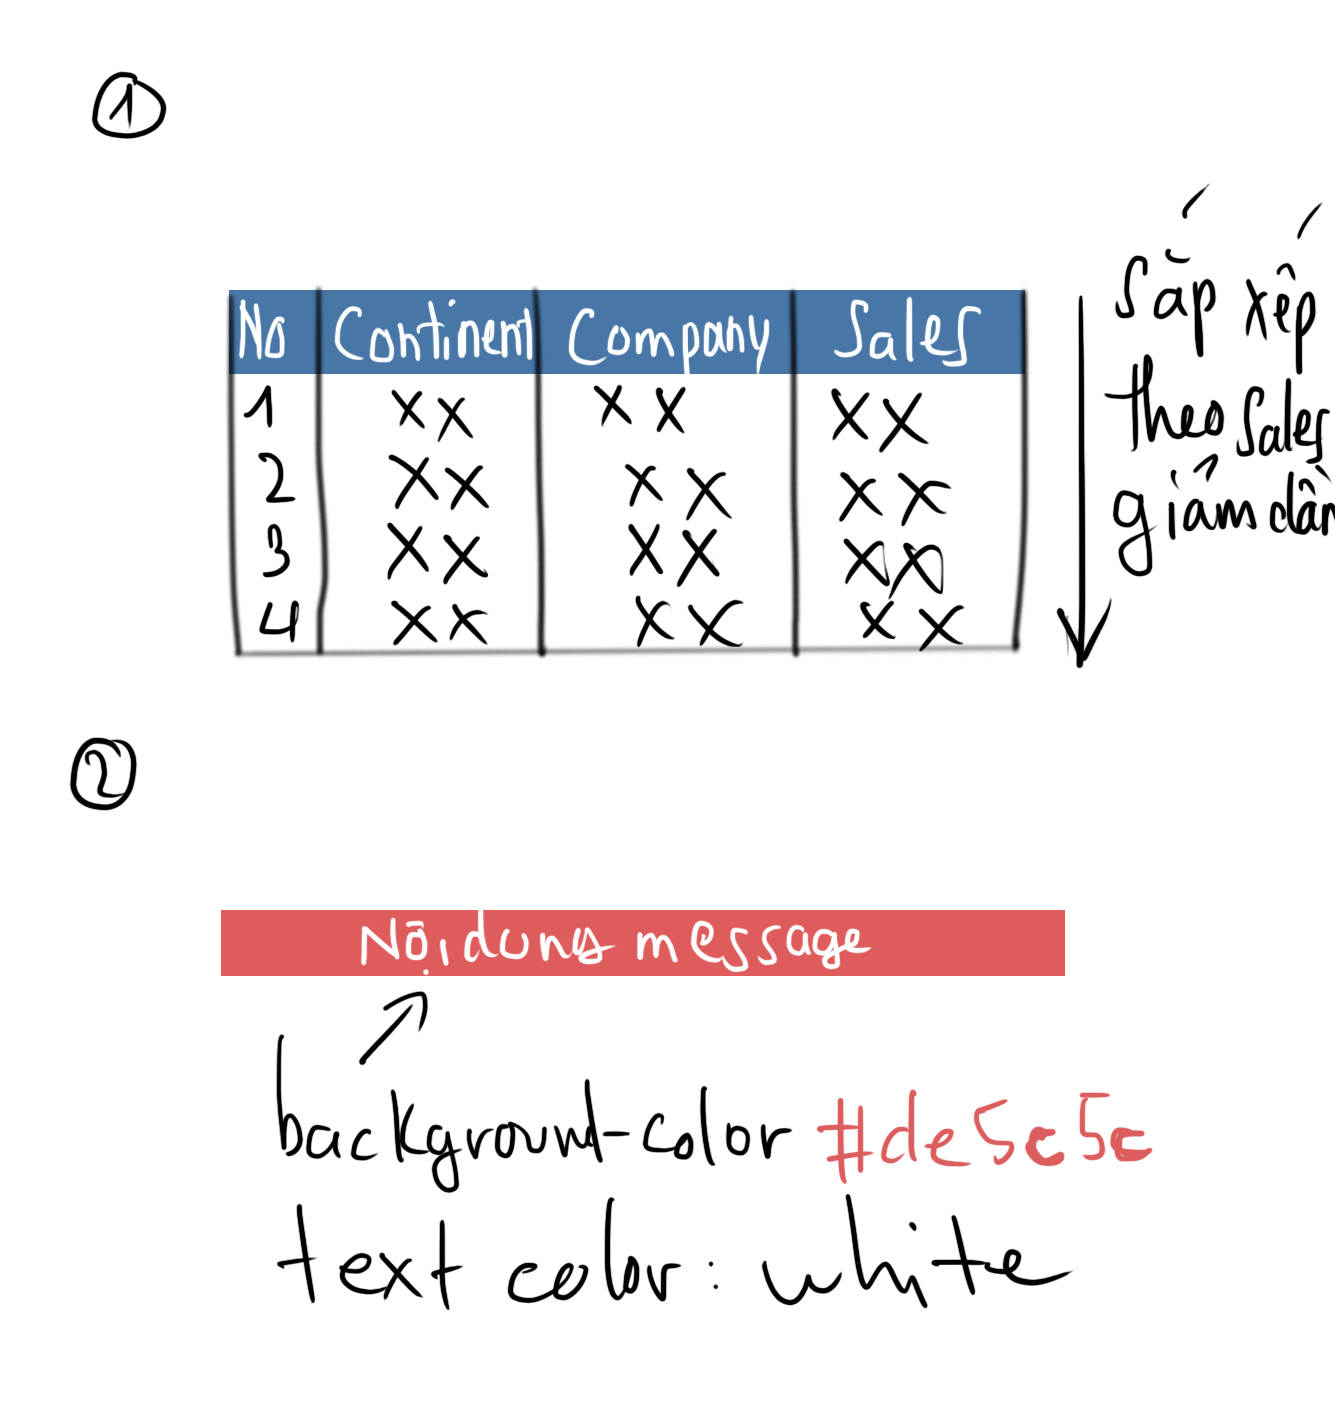 1
No Continent Company Sales
1 XX XX XX
2 XX XX XX
3 XX XX XX
4 XX XX XX
Sắp xếp
theo Sales
giảm dần
2
Nội dung message
background-color #de5c5c
text color: white